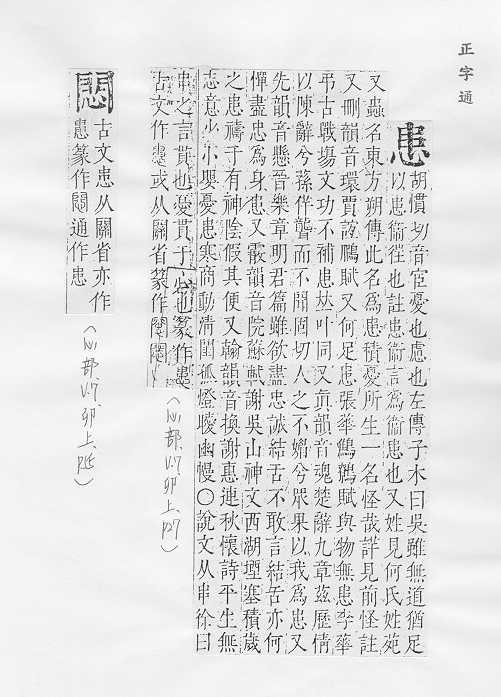 正字通
患
胡慣切音宦憂也慮也左傳子木曰吳雖無道猶足
以患衞徃也註患衞言爲衞患也又姓見何氏姓苑
又蟲名東方朔傳此名爲患積憂所生一名怪哉詳見前怪註
又刪韻音環賈誼鵩賦又何足患張華鷦鷯賦與物無患李華
弔古戰塲文功不補患丛叶同又眞韻音魂楚辭九章茲歷情
以陳辭兮蓀佯聾而不聞固切人之不媚兮衆果以我爲患又
先韻音懸晉樂章明君篇雖欲盡忠誠結舌不敢言結舌亦何
憚盡忠爲身患又霰韻音院蘇軾謝吳山神文西湖堙塞積歲
之患禱于有神陰假其便又翰韻音換謝惠連秋懷詩平生無
志意少小嬰憂患寒商動清閨孤燈曖幽幔○說文从串徐曰
串之言貫也憂貫于心也篆作患
古文作悶或从關省篆作
(心部、V.7 卯上、P.27)
古文患从關省亦作
患篆作閸通作患
(心部、V.7、卯上、P.25)